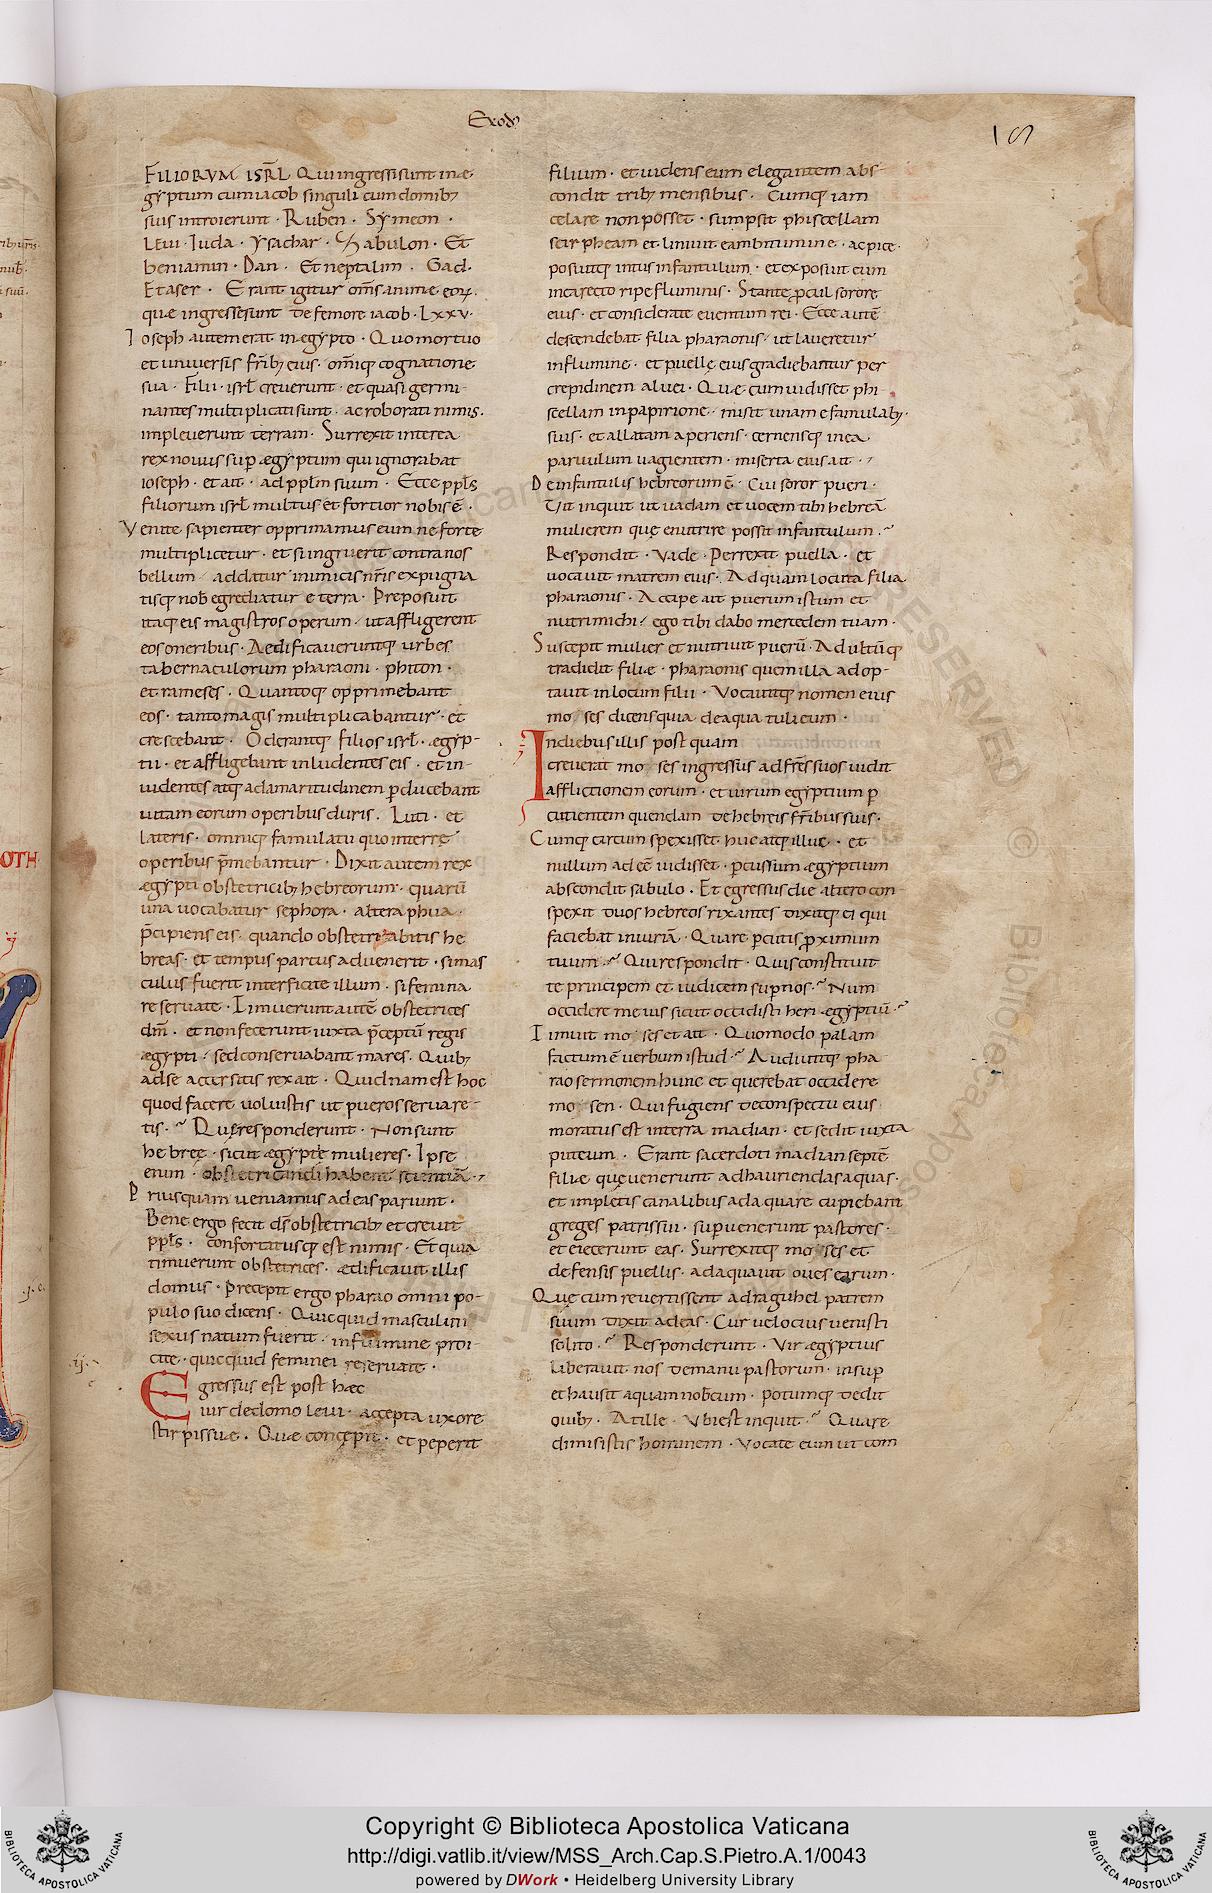 Exod
FILIORVM ISRL Qui ingressi sunt in æ
gyptum cum iacob singuli cum domib;
suis introierunt · Ruben · Symeon ·
Leui · Iuda · Ysachar · Zabulon · Et
beniamin · Dan · Et neptalim · Gad ·
Et aser · Erant igitur om̄s anime eoꝝ
que ingresse sunt de femore iacob · Lxxv ·
Ioseph autem erat in ægypto · Quo mortuo
et uniuersis fr̄ib; eius · om̄iq; cognatione
sua · Filii · isrl̄ creuerunt · et quasi germi-
nantes multiplicati sunt · ac roborati nimis ·
impleuerunt terram · Surrexit interea
rex nouus sup̄ ægyptum qui ignorabat
ioseph · et ait · ad ppl̄m suum · Ecce ppl̄s
filiorum isrl̄ multus et fortior nobis ē ·
Venite sapienter opprimamus eum ne forte
multiplicetur · et si ingruerit contra nos
bellum addatur inimicis nr̄is expugna
tisq; nob̄ egrediatur e terra · Preposuit
itaq; eis magistros operum · ut affligerent
eos oneribus · Aedificaueruntq; urbes
tabernaculorum pharaoni · phiton ·
et rameses · Quantoq; opprimebant
eos · tanto magis multiplicabantur · et
crescebant · Oderantq; filios isrl̄ · ægyp-
tii · et affligebant inludentes eis · et in-
uidentes atq; ad amaritudinem p̄ducebant
uitam eorum operibus duris · Luti · et
lateris · omniq; famulatu quo in terrę
operibus p̄mebantur · Dixit autem rex
ægypti obstetricib; hebreorum · quarū
una uocabatur sephora · altera phua ·
p̄cipiens eis · quando obstetricabitis he
breas · et tempus partus aduenerit · si mas
culus fuerit interficite illum · si femina
reseruate · Timuerunt autē obstetrices
dm̄ · et non fecerunt iuxta p̄ceptū regis
ægypti · sed conseruabant mares · Quib;
ad se accersitis rex ait · Quid nam est hoc
quod facere uoluistis ut pueros seruare-
tis · Quę responderunt · Non sunt
hebreę · sicut ægyptię mulieres · Ipse
enim · obstetricandi habent scientiā ·
Priusquam ueniamus ad eas pariunt ·
Bene ergo fecit ds̄ obstetricib; et creuit
ppl̄s · confortatusq; est nimis · Et quia
timuerunt obstetrices · ædificauit illis
domus · Precepit ergo pharao omni po-
pulo suo dicens · Quicquid masculini
sexus natum fuerit · in flumine proi-
cite · quicquid feminei reseruate ·
Egressus est post hæc
uir de domo leui · accepta uxore
stirpis suæ · Quæ concepit · et peperit
filium · et uidens eum elegantem abs-
condit trib; mensibus · Cumq; iam
celare non posset · sumpsit phiscellam
scirpheam et liniuit eam bitumine · ac pice ·
posuitq; intus infantulum · et exposuit eum
in carecto ripe fluminis · Stante p̄cul sorore
eius · et considerate euentum rei · Ecce autē
descendebat filia pharaonis · ut laueretur
in flumine · et puellę eius gradiebantur per
crepidinem aluei · Quæ cum uidisset phi-
scellam in papirione · misit unam e famulab;
suis · et allatam aperiens · cernensq; in ea
paruulum uagientem · miserta eius ait ·
De infantulis hebreorum ē · Cui soror pueri ·
Uit inquit ut uadam et uocem tibi hebreā
mulierem quę enutrire possit infantulum ·
Respondit · Vade · Perrexit puella · et
uocauit matrem eius · Ad quam locuta filia
pharaonis · Accipe ait puerum istum et
nutri michi · ego tibi dabo mercedem tuam ·
Suscepit mulier et nutriuit puerū · Adultūq;
tradidit filiæ · pharaonis quem illa adop-
tauit in locum filii · Vocauitq; nomen eius
mo ses dicens quia de aqua tuli eum ·
In diebus illis post quam
creuerat mo ses ingressus ad fr̄es suos uidit
afflictionem eorum · et uirum egyptium p̄
cutientem quendam de hebreis fr̄ibus suis ·
Cumq; circum spexisset huc atq; illuc · et
nullum adeē uidisset · p̄cussum ægyptium
abscondit sabulo · Et egressus die altero con-
spexit duos hebreos rixantes dixitq; ei qui
faciebat iniuriā · Quare p̄cutis p̄ximum
tuum · Qui respondit · Quis constituit
te principem et iudicem sup̄ nos · Num
occidere me uis sicut occidisti heri ægyptiū ·
Timuit mo ses et ait · Quomodo palam
factum ē uerbum istud · Audiuitq; pha
rao sermonem hunc et querebat occidere
mo sen · Qui fugiens de conspectu eius
moratus est in terra madian · et sedit iuxta
puteum · Erant sacerdoti madian septē
filiæ quę uenerunt ad hauriendas aquas ·
et impletis canalibus adaquare cupiebant
greges patris sui · superuenerunt pastores ·
et eiecerunt eas · Surrexitq; mo ses et
defensis puellis · adaquauit oues earum ·
Quę cum reuertissent ad raguhel patrem
suum dixit ad eas · Cur uelocius uenisti
solito · Responderunt · Vir ægyptius
liberauit nos de manu pastorum · insup̄
et hausit aquam nob̄cum · potumq; dedit
ouib; · At ille · Vbi est inquit · Quare
dimisistis hominem · Vocate eum ut com
OTH
BIBLIOTECA APOSTOLICA VATICANA
Copyright © Biblioteca Apostolica Vaticana
http://digi.vatlib.it/view/MSS_Arch.Cap.S.Pietro.A.1/0043
powered by DWork • Heidelberg University Library
BIBLIOTECA APOSTOLICA VATICANA